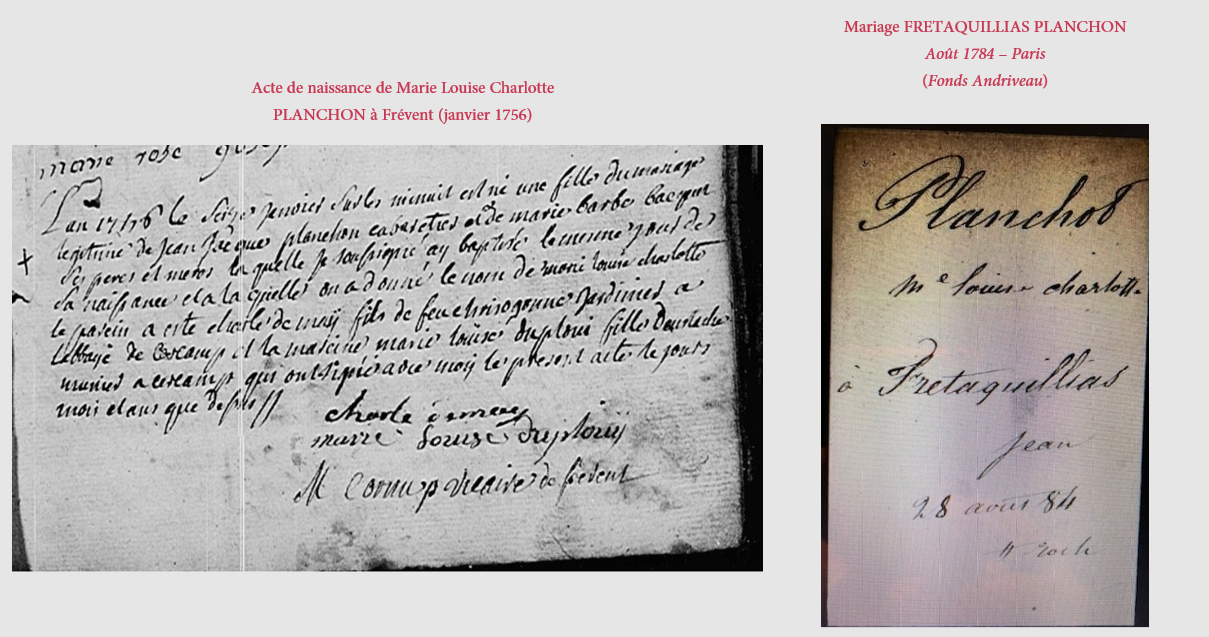 Acte de naissance de Marie Louise Charlotte
PLANCHON à Frévent (janvier 1756)
marie rose
L'an 1756 le seize janvier sur les minuit est né une fille du mariage
legitime de Jean Jacque planchon cabaretier et de marie barbe bacqueur
ses peres et meres laquelle je soussigné ay baptisé le mesme jour de
sa naissance et a laquelle on a donné le nom de marie louise charlotte
le parein a esté charle de may fils de feu chrisogonne jardinier a
l'abbaye de Cercamp et la mareine marie louise duploui fille d'eustache
munier a cercamp qui ont signé avec moy le present acte le jours
mois et ans que dessus //
charle demay
marie Louise duplouy
M Cornu p vicaire de frevent
Mariage FRETAQUILLIAS PLANCHON
Août 1784 – Paris
(Fonds Andriveau)
Planchot
me louise charlotte
à Fretaquillias
Jean
28 aoust 84
St roch